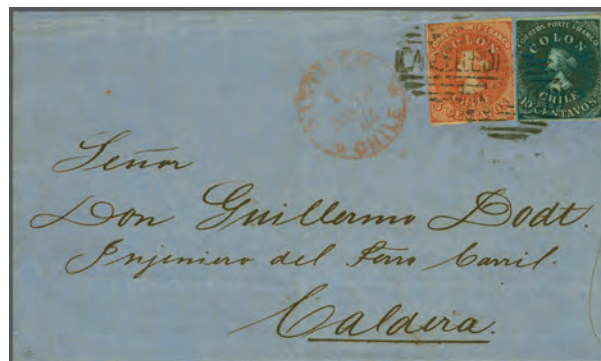 CORREOS PORTE FRANCO
COLON
CHILE
5 CENTAVOS
CORREOS PORTE FRANCO
COLON
CHILE
10 CENTAVOS
CANCELLED
CHILE
Señor
Don Guillermo Dodt.
Injeniero del Ferro Carril.
Caldera.